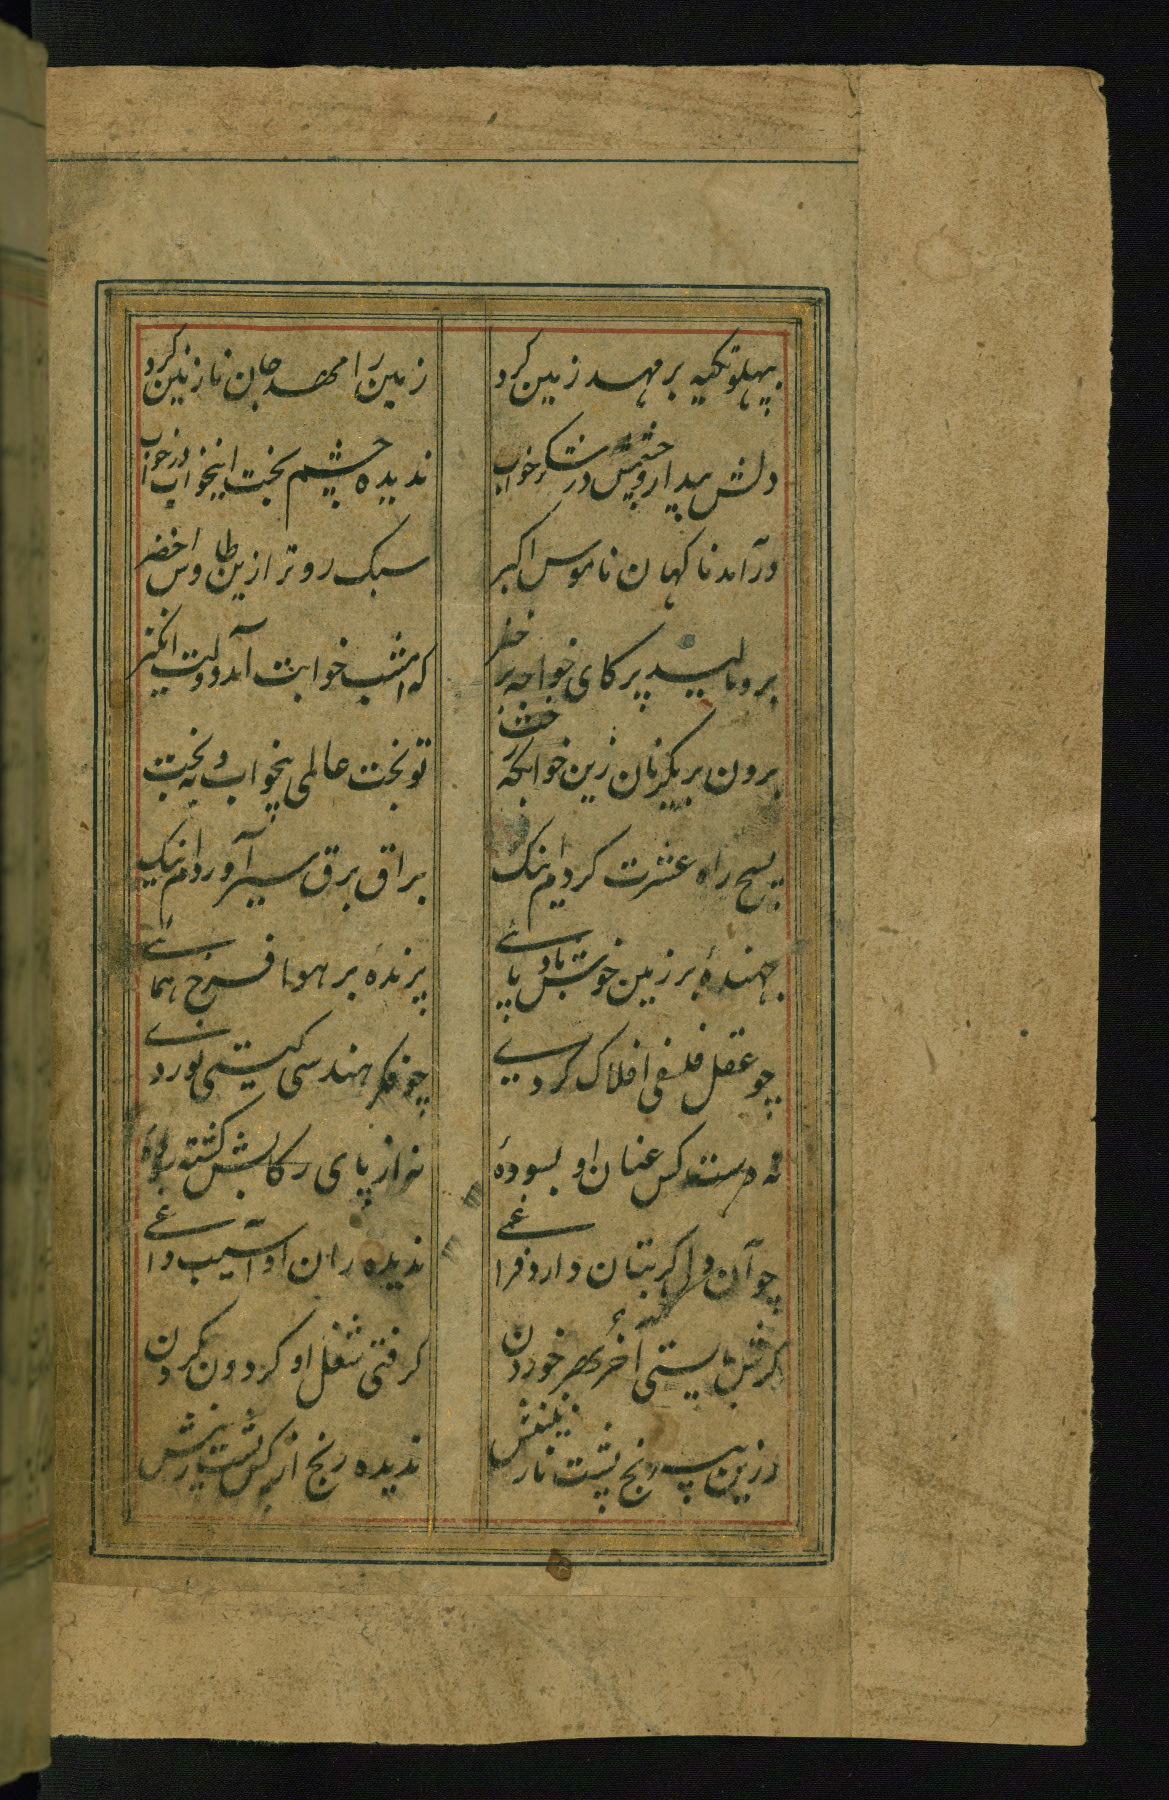 بپهلو تکیه بر مهد زمین کرد
زمین را مهد جان نازنین کرد
دلش بیدار و چشمش در شکر خواب
ندیده چشم بخت اینخواب در خواب
درآمد ناکهان ناموس اکبر
سبک رو تر ازین طاوس اخضر
برو مالید پر کای خواجه برخیز
که امشب خوابت آمد دولت انکیز
برون بر یکزمان زین خوابکه رخت
تو بخت عالمی بیخواب و به بخت
بسیج راه عشرت کردم اینک
براق برق سیر آوردم اینک
جهندۀ بر زمین خوش بادپائی
پرندۀ بر هوا فرخ همائی
چو عقل فلسفی افلاک کردی
چو فکر هندسی کیتی نوردی
نه دست کس عنان او بسوده
نه از پای رکابش کشته
چو آن دل کز بتان دارد فراغی
ندیده ران او آسیب داغی
کرش بایستی آخر بهر خوردن
کرفتی شغل او کردون بکردن
ز زین پشت نازنینش
ندیده رنج از کس پشت زینش